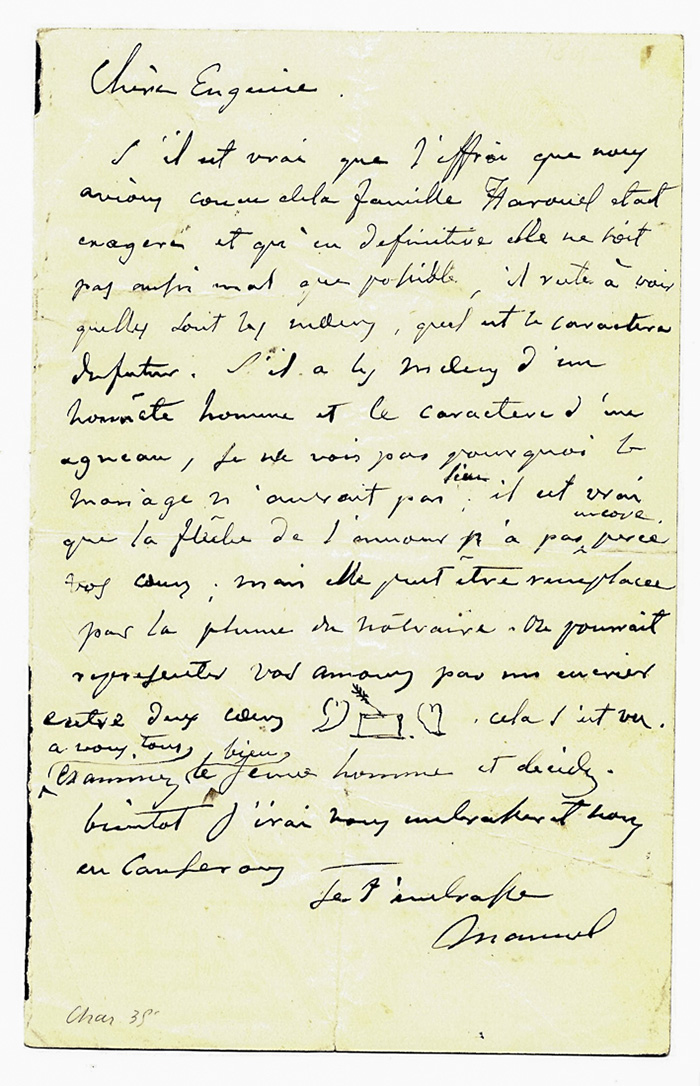 Chère Eugenie.
S'il est vrai que l'effroi que nous
avions concu dela famille Harouel etait
exageré et qu'en definitive elle ne soit
pas aussi mal que possible, il reste à voir
quelles sont les mœurs, quel est le caractere
du futur. S'il a les mœurs d'un
honnête homme et le caractere d'un
agneau, je ne vois pas pourquoi le
mariage n'aurait pas lieu; il est vrai
que la flêche de l'amour n'a pas encore percé
vos cœurs; mais elle peut être remplacée
par la plume du nôtaire. On pourrait
representer vos amours par un encrier
entre deux cœurs . cela s'est vu.
a vous tous, bien,
Examinez le jeune homme et décidez.
bientot j'irai vous embrasser et nous
en causerons
Je t'embrasse
Manuel
Char 35